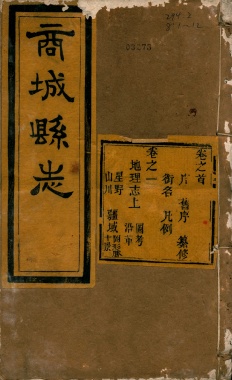 商城縣志
卷之首
舊序 纂修
銜名 凡例
卷之一
地理志上
圖考
沿革
星野
疆域
山川